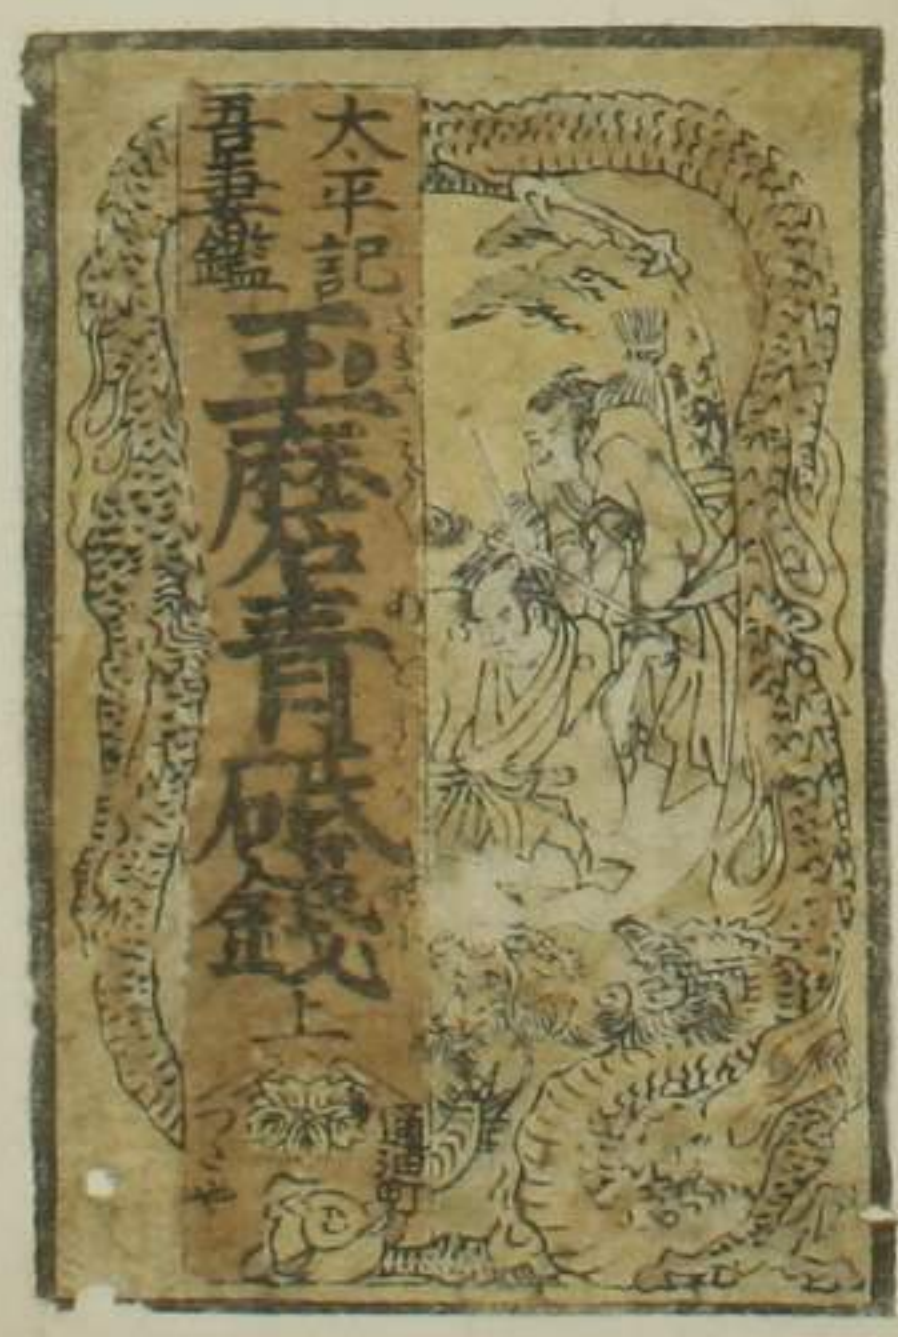 太平記
吾妻鑑
玉磨青砥銭
上
通油町
つたや